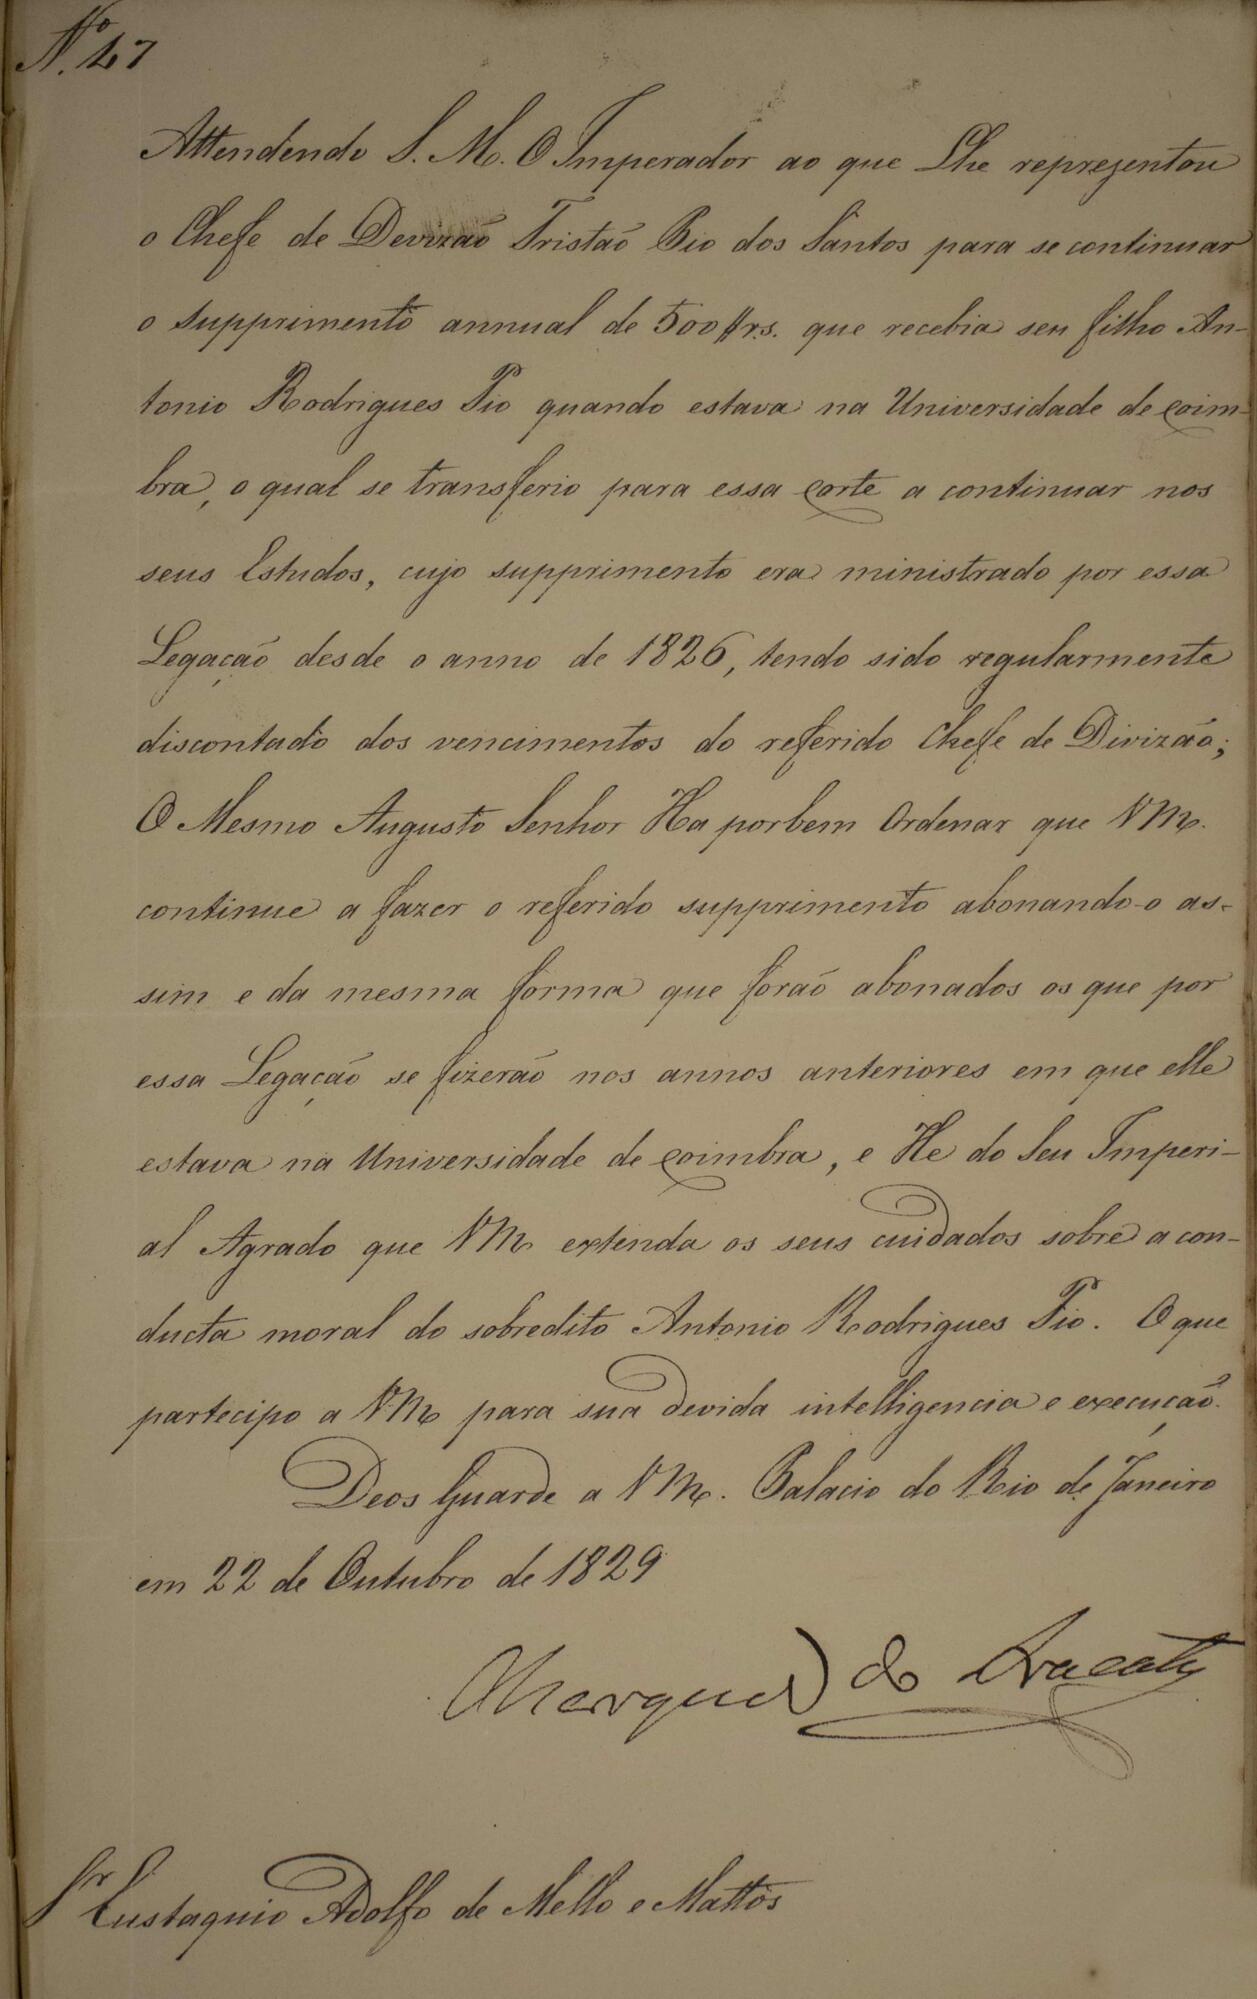 Nº 47
Attendendo S. M. O Imperador ao que Lhe reprezentou
o Chefe de Devizão Tristão Pio dos Santos para se continuar
o supprimento annual de 500$rs. que recebia seu filho An-
tonio Rodrigues Pio quando estava na Universidade de Coim-
bra, o qual se transferio para essa Corte a continuar nos
seus Estudos, cujo supprimento era ministrado por essa
Legação desde o anno de 1826, tendo sido regularmente
discontado dos vencimentos do referido Chefe de Divizão;
O Mesmo Augusto Senhor Ha por bem Ordenar que VM.
continue a fazer o referido supprimento abonando-o as-
sim e da mesma forma que forão abonados os que por
essa Legação se fizerão nos annos anteriores em que elle
estava na Universidade de Coimbra, e He do Seu Imperi-
al Agrado que VM extenda os seus cuidados sobre a con-
ducta moral do sobredito Antonio Rodrigues Pio. O que
partecipo a VM para sua devida intelligencia e execução.
Deos Guarde a VM. Palacio do Rio de Janeiro
em 22 de Outubro de 1829
Marquez de Aracaty
Sr Eustaquio Adolfo de Mello e Mattos